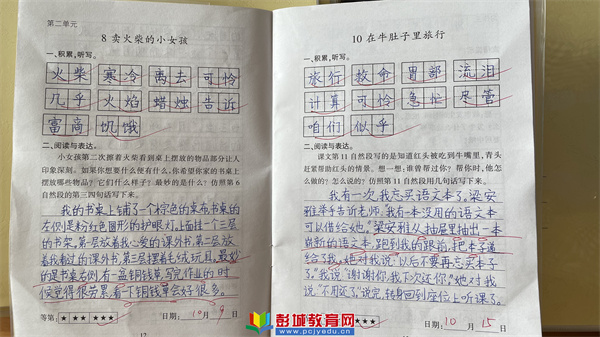 第二单元
8 卖火柴的小女孩
一、积累,听写。
火柴 寒冷 离去 可怜
几乎 火焰 蜡烛 告诉
富商 饥饿
二、阅读与表达。
小女孩第二次擦着火柴看到桌上摆放的物品部分让人
印象深刻。如果你想要什么便有什么,你希望你家的书桌上
摆放哪些物品?它们什么样子?最妙的是什么?仿照第6
自然段的第三四句话写下来。
我的书桌上铺了一个棕色的桌布,书桌的
左侧是粉红色圆形的护眼灯,上面挂一个三层
的书架,第一层放着我心爱的课外书,第二层放
着我看过的课外书,第三层摆着毛绒玩具,最妙
的是书桌右侧有一盆铜钱草,写完作业的时
候觉得很劳累看一下铜钱草会好很多。
等第: ★ ★★ ★★★
日期: 10 月 9 日
17
10 在牛肚子里旅行
一、积累,听写。
旅行 救命 胃部 流泪
计算 可怜 急忙 尽管
咱们 似乎
二、阅读与表达。
课文第11自然段写的是知道红头被吃到牛嘴里,青头
赶紧帮助红头的情景。想一想:谁曾帮过你?帮你时,他怎
么做的?怎么说的?仿照第11自然段用几句话写下来。
我有一次,我忘买语文本了,梁安
雅举手告诉老师,我有本没用的语文本
可以借给她。"梁安雅从抽屉里抽出一本
崭新的语文本,跑到我的跟前,把本子递
给了我,她对我说:以后不要再忘买本子
了。"我说"谢谢你,我下次还你。"她对我
说"不用还了"说完,转身回到座位上听课了。
等第: ★ ★★ ★★★
日期: 10 月 15 日
彭城教育网
www.pcjyedu.cn